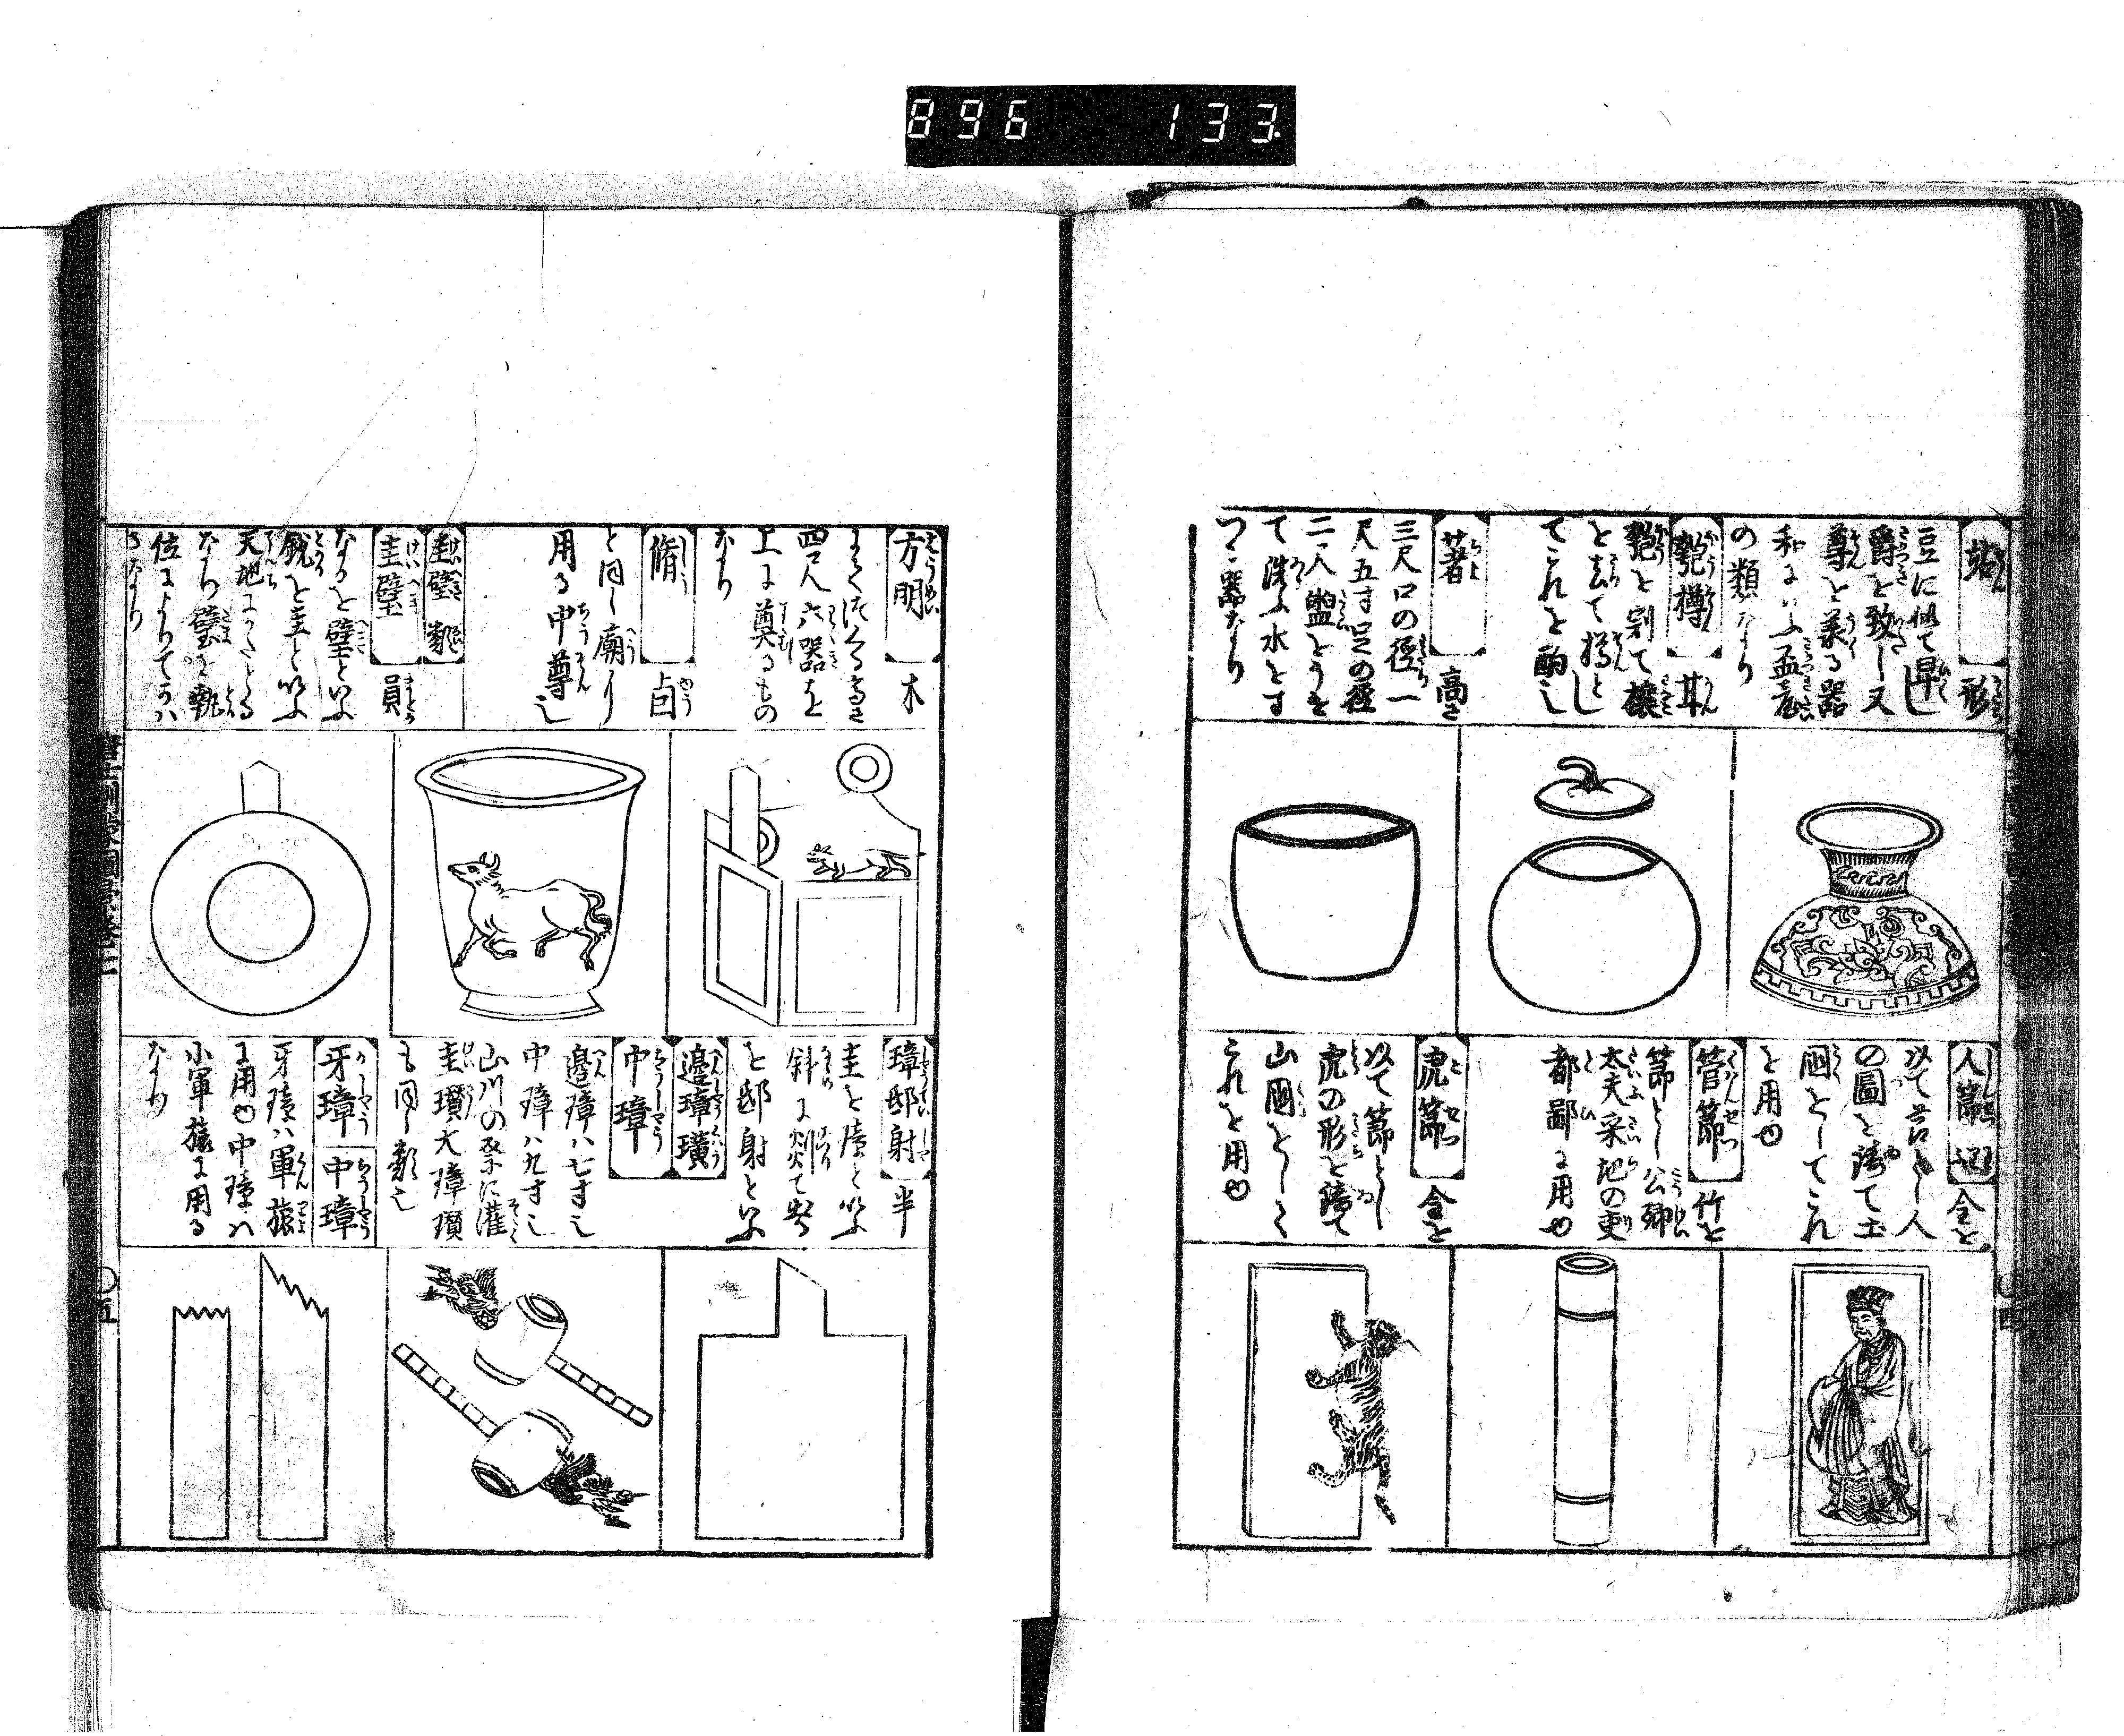 896 133
坫 形
豆に似て卑し
爵を致し又
尊を承る器
和にいふ盃臺
の類なり
匏樽 其
匏を割て穣
を去て樽とし
てこれを酌也
著 高さ
三尺口の径一
尺五寸足の径
二人盥とうを
て洗ふ水をす
つる器なり
人節 金を
以て言とし人
の圖を鋳て土
國としてこれ
を用ゆ
管節 竹を
節とし公卿
大夫采地の吏
都鄙に用ゆ
虎節 金を
以て節とし
虎の形を鋳て
山國としく
これを用ゆ
方明 木
四尺六器を
上に奠るもの
なり
脩 卣
と同し廟に
用る中尊也
圭璧 類
圭璧 員
なるを璧といふ
銳を圭といふ
天地にかたどる
なり璧を執
位によりてかハ
るなり
璋邸射 半
圭を璋といふ
斜に剡て出
を邸射といふ
邊璋瓚
中璋
邊璋ハ七寸也
中璋ハ九寸也
山川の祭に灌
圭瓚大璋瓚
も同し類也
牙璋 中璋
牙璋ハ軍旅
に用ゆ中璋ハ
小軍旅に用る
なり
〇五